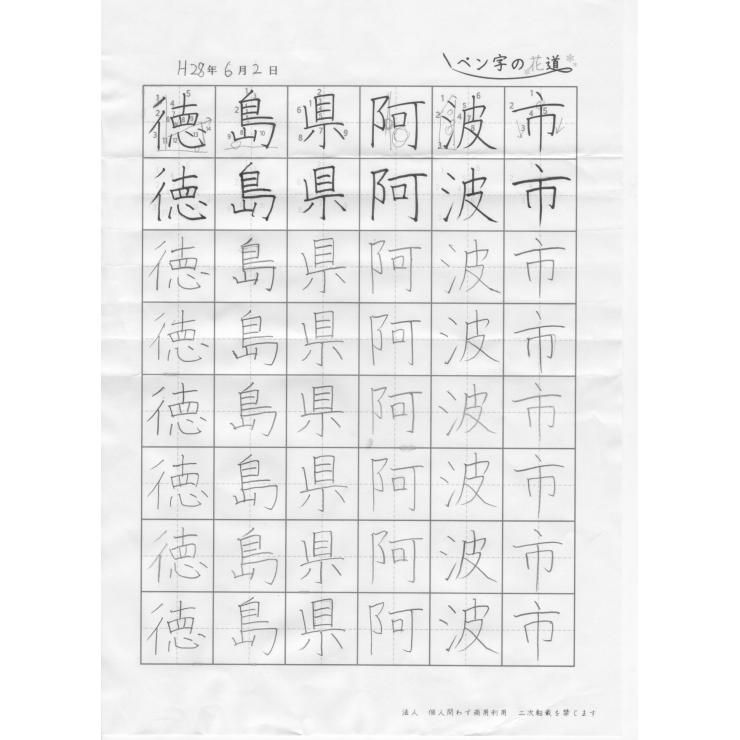 H28年6月2日
ペン字の花道
徳島県阿波市
徳島県阿波市
徳島県阿波市
徳島県阿波市
徳島県阿波市
徳島県阿波市
徳島県阿波市
徳島県阿波市
法人 個人問わず商用利用 二次転載を禁じます